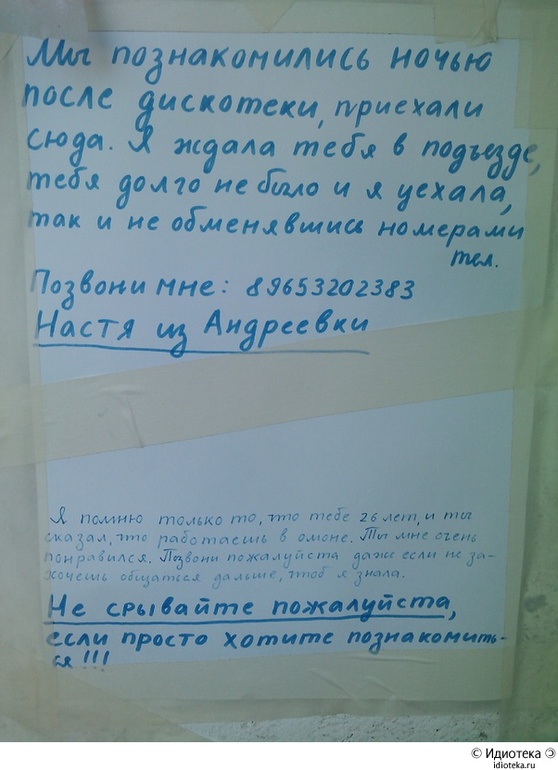 Мы познакомились ночью
после дискотеки, приехали
сюда. Я ждала тебя в подъезде,
тебя долго не было и я уехала,
так и не обменявшись номерами
тел.
Позвони мне: 89653202383
Настя из Андреевки
Я помню только то, что тебе 26 лет, и ты
сказал, что работаешь в омоне. Ты мне очень
понравился. Позвони пожалуйста даже если не за-
хочешь общаться дальше, чтоб я знала.
Не срывайте пожалуйста,
если просто хотите познакомить-
ся!!!
© Идиотека
idioteka.ru